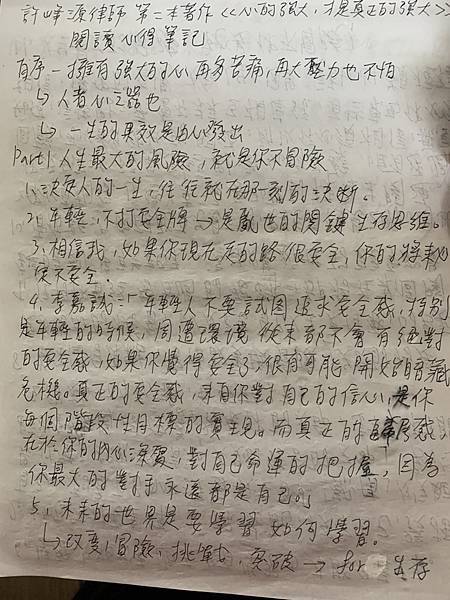 許峰源律師 第二本著作《心的強大,才是真正的強大》
閱讀心得筆記
自序-擁有強大的心再多苦痛,再大壓力也不怕
↳人者心之器也
↳一生的果效是由心發出
Part1人生最大的風險,就是你不冒險
1、決定人的一生,往往就在那一刻的決斷。
2、年輕,不打安全牌→是亂世的關鍵生存思維。
3、相信我,如果你現在走的路很安全,你的將來必
定不安全.
4、李嘉誠:「年輕人不要試圖追求安全感,特別
是年輕的時候,周遭環境從來都不會有絕對
的安全感,如果你覺得安全了,很有可能開始暗藏
危機。真正的安全感,來自你對自己的信心,是你
每個階段性目標的實現。而真正的歸屬感,
在於你的內心深處,對自己命運的把握,因為
你最大的對手永遠都是自己」
5、未來的世界是要學習如何學習。
↳改變,冒險,挑戰,突破→for 生存